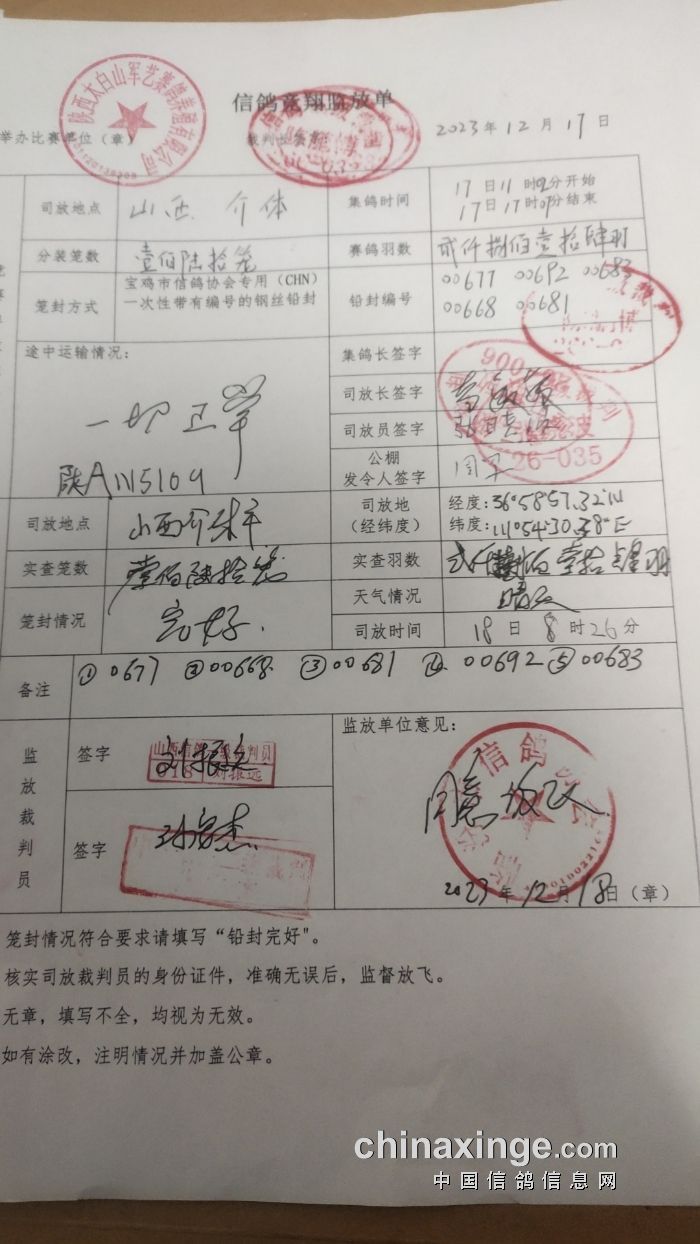 信鸽竞翔监放单
举办比赛单位（章）
陕西太白山军艺赛鸽
2023年12月17日
司放地点
山西 介休
集鸽时间
17日11时 分开始
17日17时 分结束
分装笼数
壹佰陆拾笼
赛鸽羽数
贰仟捌佰壹拾肆羽
笼封方式
宝鸡市信鸽协会专用（CHN）
一次性带有编号的钢丝铅封
铅封编号
00677 00692 00683
00668 00681
途中运输情况：
一切正常
陕A
集鸽长签字
司放长签字
司放员签字
公棚
发令人签字
26-035
司放地点
山西介休
司放地
（经纬度）
经度：36°58′57.32″N
纬度：111°54′30.38″E
实查笼数
壹佰陆拾笼
实查羽数
笼封情况
完好.
天气情况
晴天
司放时间
18日8时26分
备注
①00677 ②00668 ③00681 ④00692 ⑤00683
监放裁判员
签字
刘振远
签字
监放单位意见：
同意放飞
2023年12月18日（章）
笼封情况符合要求请填写“铅封完好"。
核实司放裁判员的身份证件，准确无误后，监督放飞。
无章，填写不全，均视为无效。
如有涂改，注明情况并加盖公章。
chinaxinge.com
中国信鸽信息网